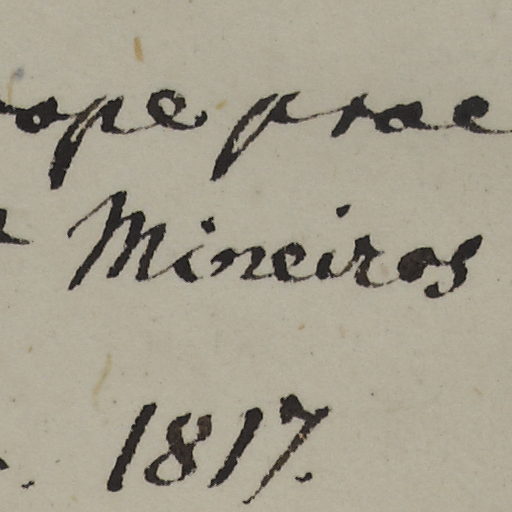 rope prae
Mineiros
. 1817.